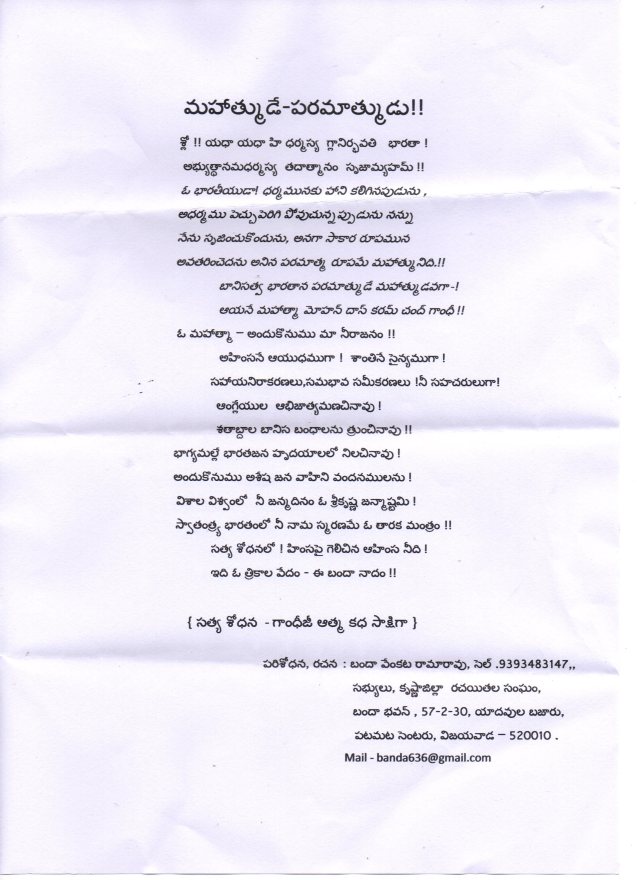 మహాత్ముడే-పరమాత్ముడు!!
శ్లో !! యధా యధా హి ధర్మస్య గ్లానిర్భవతి భారతా !
అభ్యుత్ధానమధర్మస్య తదాత్మానం సృజామ్యహమ్ !!
ఓ భారతీయుడా! ధర్మమునకు హాని కలిగినపుడును ,
అధర్మము పెచ్చుపెరిగి పోవుచున్నప్పుడును నన్ను
నేను సృజించుకొందును, అనగా సాకార రూపమున
అవతరించెదను అనిన పరమాత్మ రూపమే మహాత్మునిది.!!
బానిసత్వ భారతాన పరమాత్ముడే మహాత్ముడవగా-!
ఆయనే మహాత్మా మోహన్ దాస్ కరమ్ చంద్ గాంధీ !!
ఓ మహాత్మా – అందుకొనుము మా నీరాజనం !!
అహింసనే ఆయుధముగా ! శాంతినే సైన్యముగా !
సహాయనిరాకరణలు,సమభావ సమీకరణలు !నీ సహచరులుగా!
ఆంగ్లేయుల ఆభిజాత్యమణచినావు !
శతాబ్దాల బానిస బంధాలను త్రుంచినావు !!
భాగ్యమల్లే భారతజన హృదయాలలో నిలచినావు !
అందుకొనుము అశేష జన వాహిని వందనములను !
విశాల విశ్వంలో నీ జన్మదినం ఓ శ్రీకృష్ణ జన్మాష్టమి !
స్వాతంత్ర్య భారతంలో నీ నామ స్మరణమే ఓ తారక మంత్రం !!
సత్య శోధనలో ! హింసపై గెలిచిన ఆహింస నీది !
ఇది ఓ త్రికాల వేదం - ఈ బందా నాదం !!
{ సత్య శోధన - గాంధీజీ ఆత్మ కధ సాక్షిగా }
పరిశోధన, రచన : బందా వేంకట రామారావు, సెల్ .9393483147,,
సభ్యులు, కృష్ణాజిల్లా రచయితల సంఘం,
బందా భవన్ , 57-2-30, యాదవుల బజారు,
పటమట సెంటరు, విజయవాడ – 520010 .
Mail - banda636@gmail.com